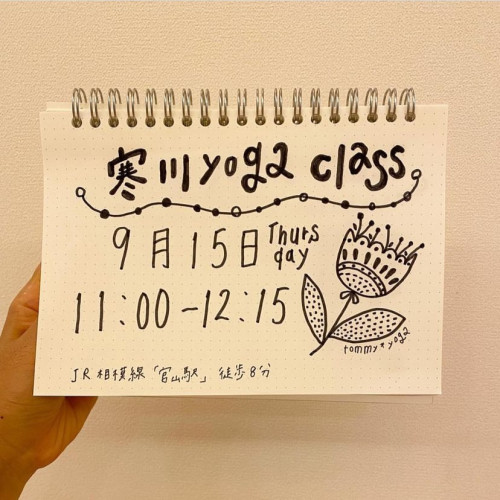 寒川yoga class
9月15日 Thursday
11:00-12:15
tommy*yoga
JR相模線「宮山駅」徒歩8分